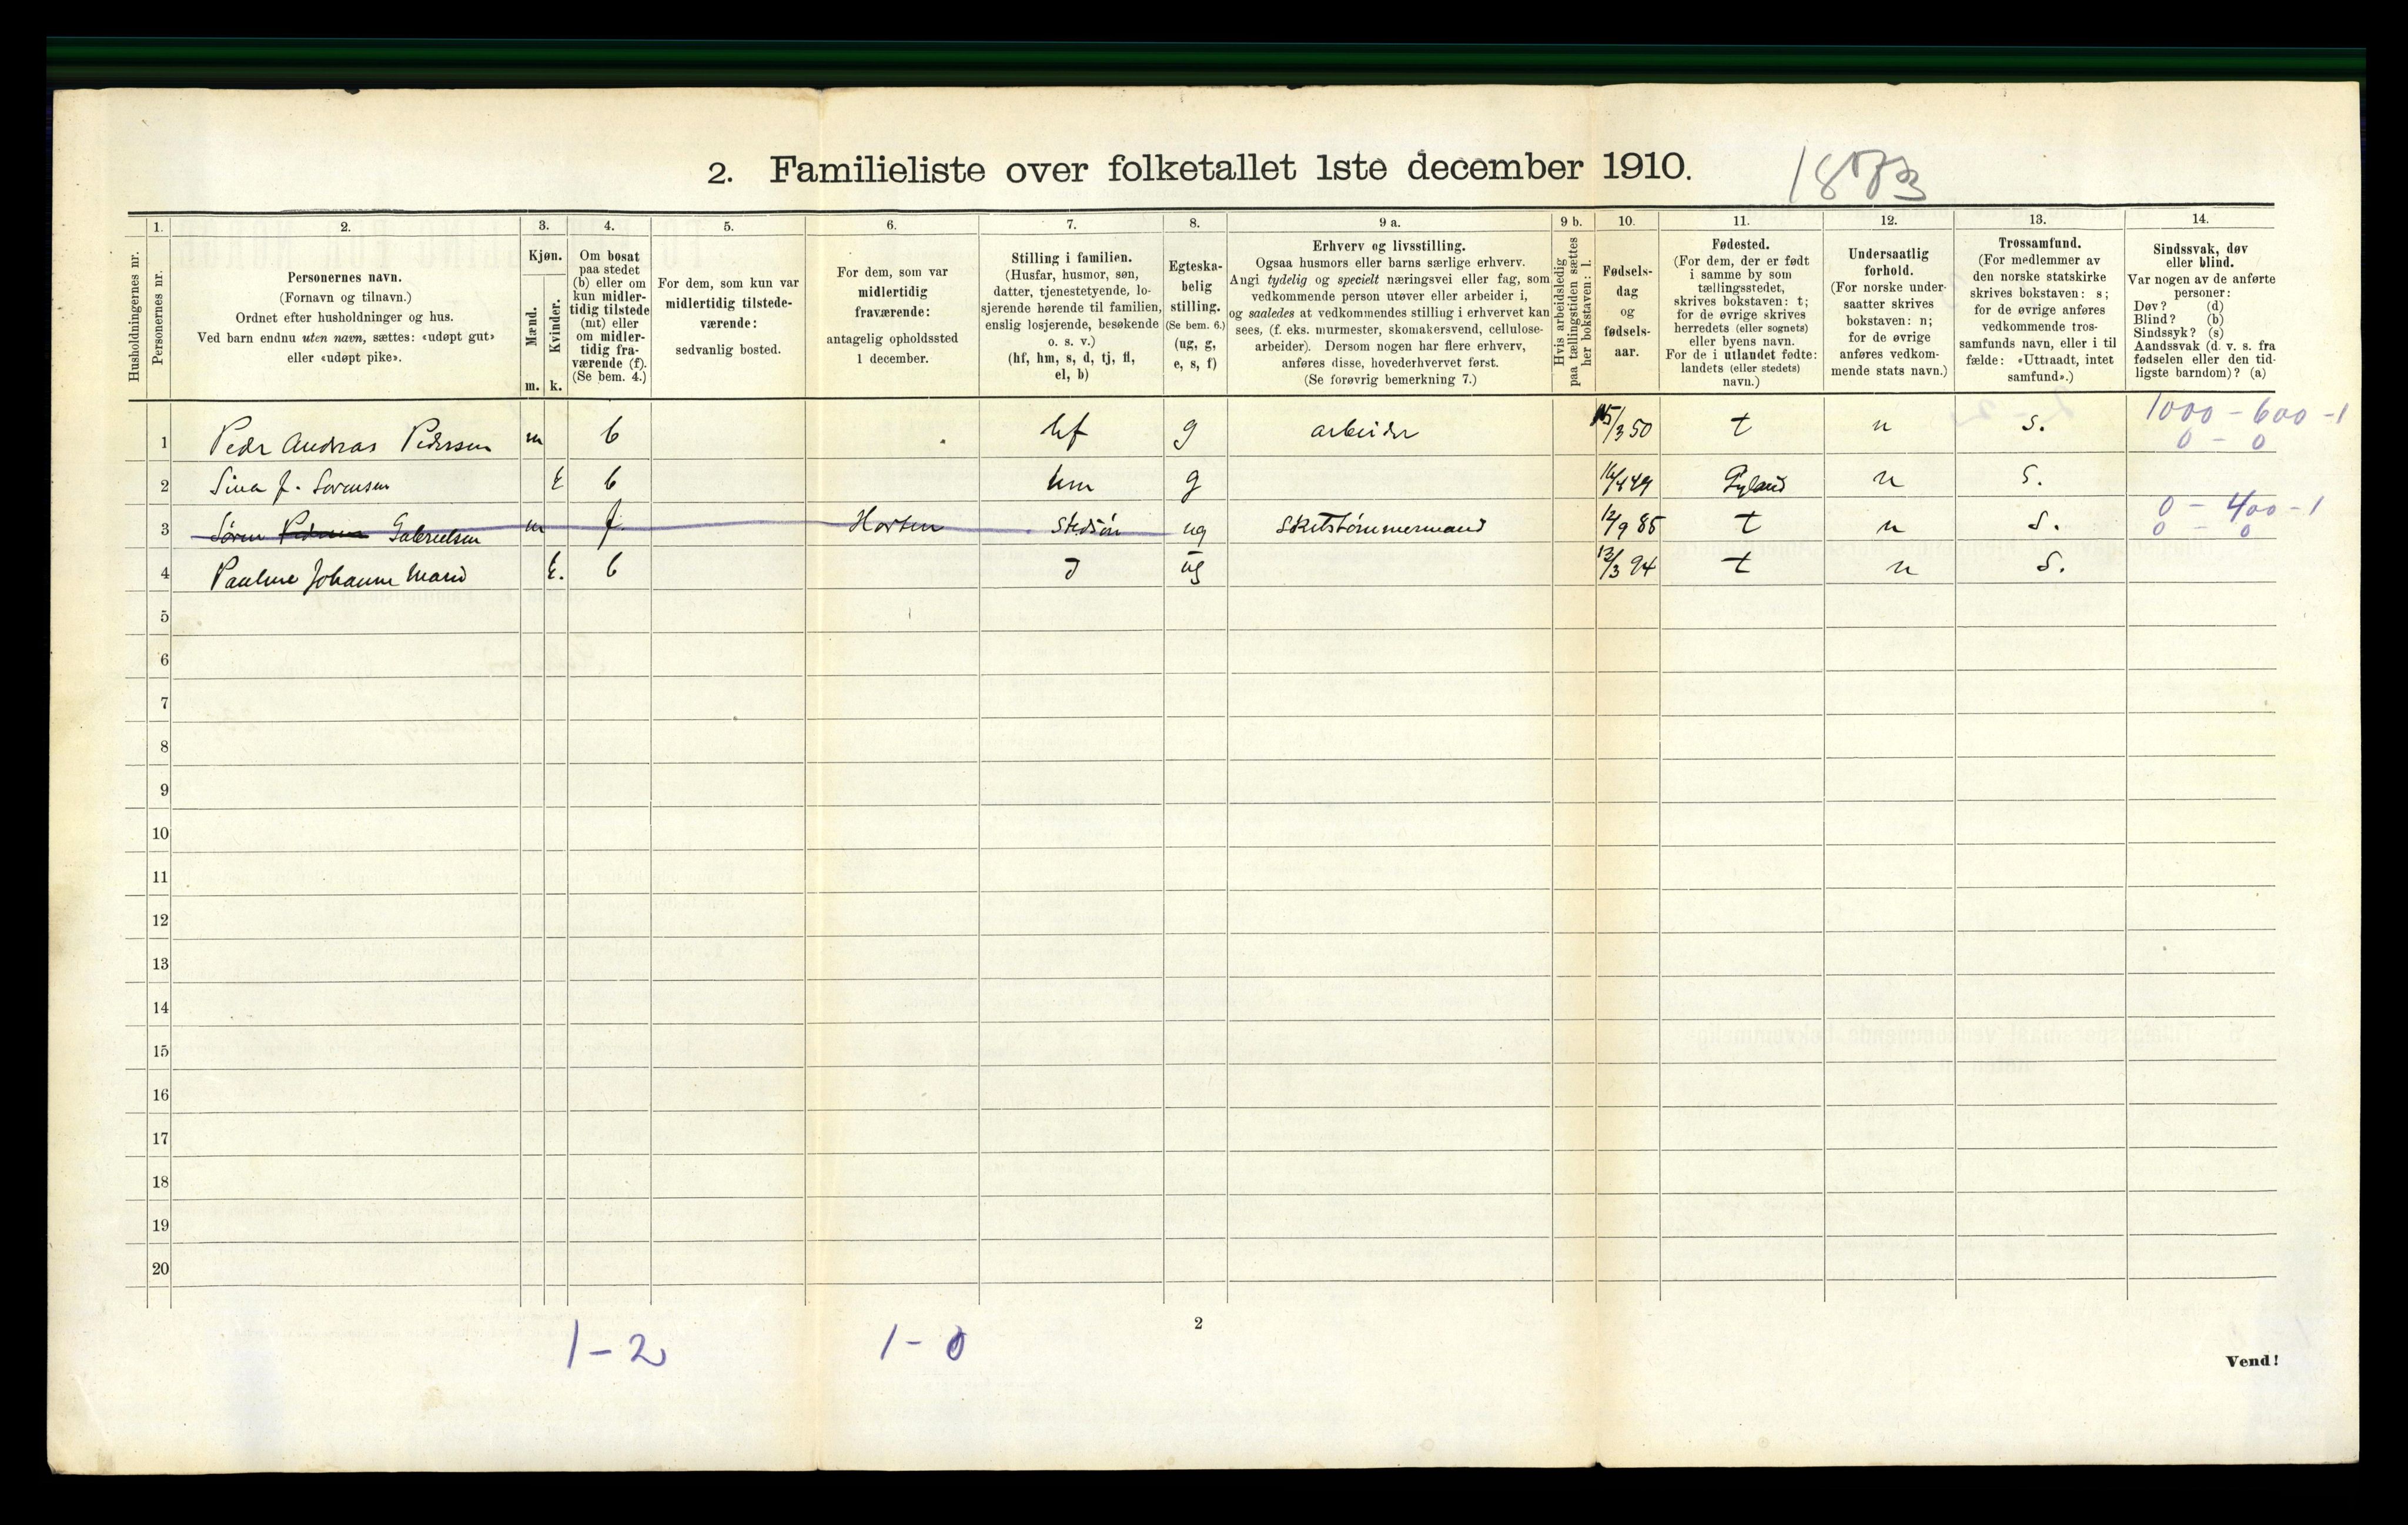 2. Familieliste over folketallet 1ste december 1910.
1. 2. 3. 4. 5. 6. 7. 8. 9 a. 9 b. 10. 11. 12. 13. 14.
Husholdningernes nr.
Personernes nr.
Personernes navn.
(Fornavn og tilnavn.)
Ordnet efter husholdninger og hus.
Ved barn endnu uten navn, sættes: «udøpt gut»
eller «udøpt pike».
Kjøn.
Mænd.
Kvinder.
m. k.
Om bosat
paa stedet
(b) eller om
kun midler-
tidig tilstede
(mt) eller
om midler-
tidig fra-
værende (f).
(Se bem. 4.)
For dem, som kun var
midlertidig tilstede-
værende:
sedvanlig bosted.
For dem, som var
midlertidig
fraværende:
antagelig opholdssted
1 december.
Stilling i familien.
(Husfar, husmor, søn,
datter, tjenestetyende, lo-
sjerende hørende til familien,
enslig losjerende, besøkende
o. s. v.)
(hf, hm, s, d, tj, fl,
el, b)
Egteska-
belig
stilling.
(Se bem. 6.)
(ug, g,
e, s, f)
Erhverv og livsstilling.
Ogsaa husmors eller barns særlige erhverv.
Angi tydelig og specielt næringsvei eller fag, som
vedkommende person utøver eller arbeider i,
og saaledes at vedkommendes stilling i erhvervet kan
sees, (f. eks. murmester, skomakersvend, cellulose-
arbeider). Dersom nogen har flere erhverv,
anføres disse, hovederhvervet først.
(Se forøvrig bemerkning 7.)
Hvis arbeidsledig
paa tællingstiden sættes
her bokstaven: l.
Fødsels-
dag
og
fødsels-
aar.
Fødested.
(For dem, der er født
i samme by som
tællingsstedet,
skrives bokstaven: t;
for de øvrige skrives
herredets (eller sognets)
eller byens navn.
For de i utlandet fødte:
landets (eller stedets)
navn.)
Undersaatlig
forhold.
(For norske under-
saatter skrives
bokstaven: n;
for de øvrige
anføres vedkom-
mende stats navn.)
Trossamfund.
(For medlemmer av
den norske statskirke
skrives bokstaven: s;
for de øvrige anføres
vedkommende tros-
samfunds navn, eller i til-
fælde: «Uttraadt, intet
samfund».)
Sindssvak, døv
eller blind.
Var nogen av de anførte
personer:
Døv? (d)
Blind? (b)
Sindssyk? (s)
Aandssvak (d. v. s. fra
fødselen eller den tid-
ligste barndom)? (a)
1 Peder Andreas Pedersen m b hf g arbeider 15/3 50 t n S. 1000 - 600 - 1
0 - 0
2 Sina J. Sørensen k b hm g Gyland n S.
3 Søren Pedersen Gabrielsen m f Horten stedsøn ug Skibstømmermand 12/9 85 t n S. 0 - 400 - 1
0 - 0
4 Pauline Johanne Marie k. b d ug 13/3 94 t n S.
5
6
7
8
9
10
11
12
13
14
15
16
17
18
19
20
1 - 2 1 - 0
2
Vend!